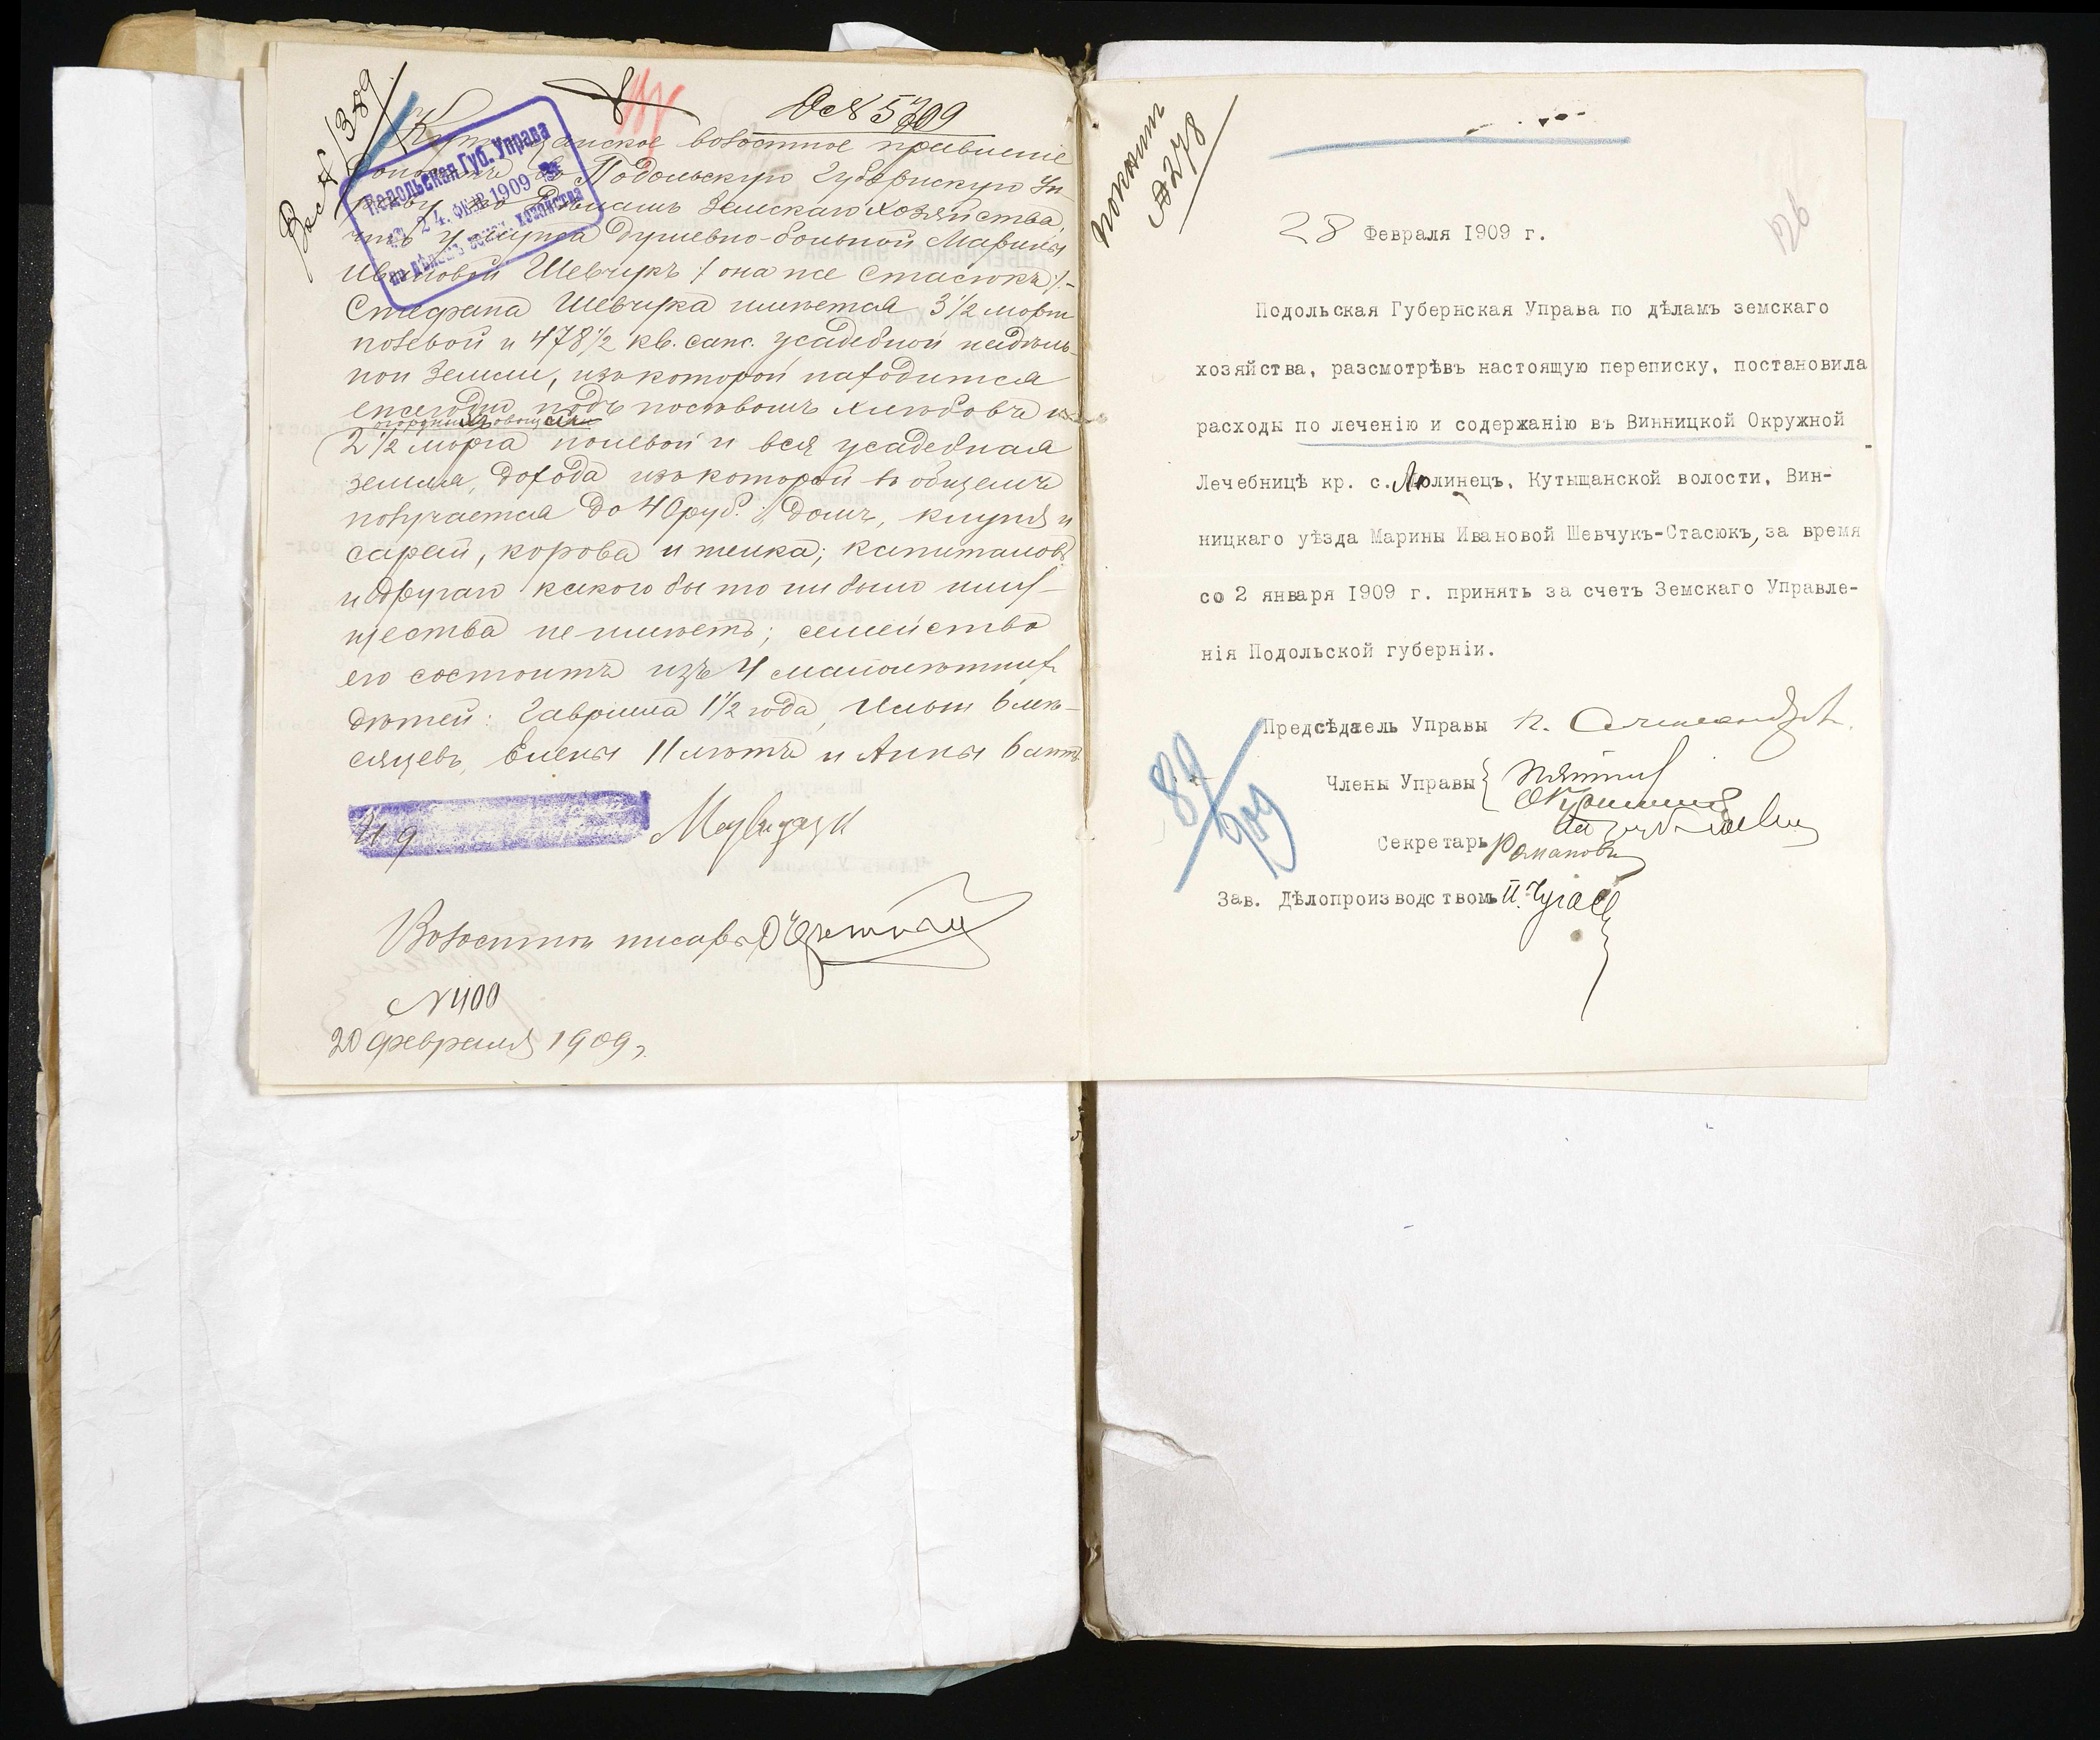 Вос № 1389
Д № 5/909
Подольская Губ. Управа
24. ФЕВ 1909
по дѣламъ земск. хозяйства
Кутыщанское волостное правленіе
доноситъ въ Подольскую Губернскую Уп-
раву по Дѣламъ Земскаго Хозяйства,
что у мужа душевно-больной Марины
Ивановой Шевчукъ /она же Стасюкъ/.-
Стефана Шевчука имѣется 3½ морга
полевой и 478½ кв. саж. усадебной надѣль-
ной земли, изъ которой находится
ежегодно подъ посѣвомъ хлѣбовъ
огородныхъ овощей
2½ морга полевой и вся усадебная
земля, дохода изъ которой въ общемъ
получается до 40 руб.; домъ, клуня и
сарай, корова и телка; капиталовъ
и другаго какого бы то ни было иму-
щества не имѣетъ; семейство
его состоитъ изъ 4 малолѣтнихъ
дѣтей: Гавріила 1½ года, 6 мѣ-
сяцевъ, Елены 11 лѣтъ и Анны 6 лѣтъ
И д
Волостной писарь
№ 400
20 февраля 1909 г.
№ 278
126
28 Февраля 1909 г.
Подольская Губернская Управа по дѣламъ земскаго
хозяйства, разсмотрѣвъ настоящую переписку, постановила
расходы по леченію и содержанію въ Винницкой Окружной
Лечебницѣ кр. с. Люлинецъ, Кутыщанской волости, Вин-
ницкаго уѣзда Марины Ивановой Шевчукъ-Стасюкъ, за время
со 2 января 1909 г. принять за счетъ Земскаго Управле-
нія Подольской губерніи.
Предсѣдатель Управы
Члены Управы
Секретарь Романов
Зав. Дѣлопроизводствомъ
89/909